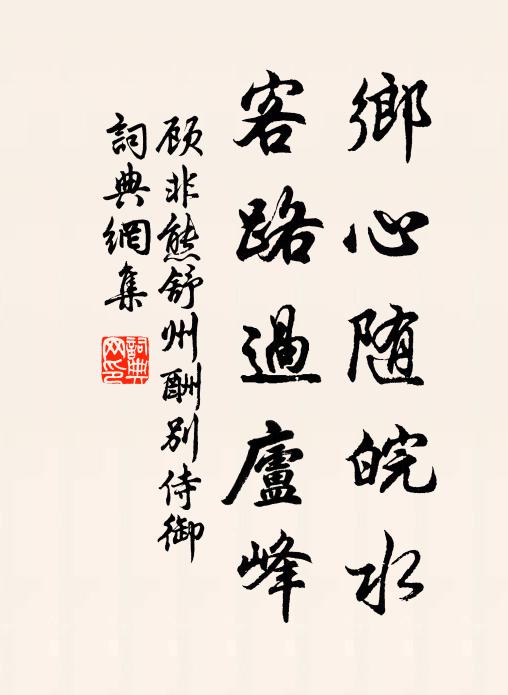 鄉心隨皖水
客路過廬峰
顾非熊舒州酬別侍御
詞典網集
詞典
网印